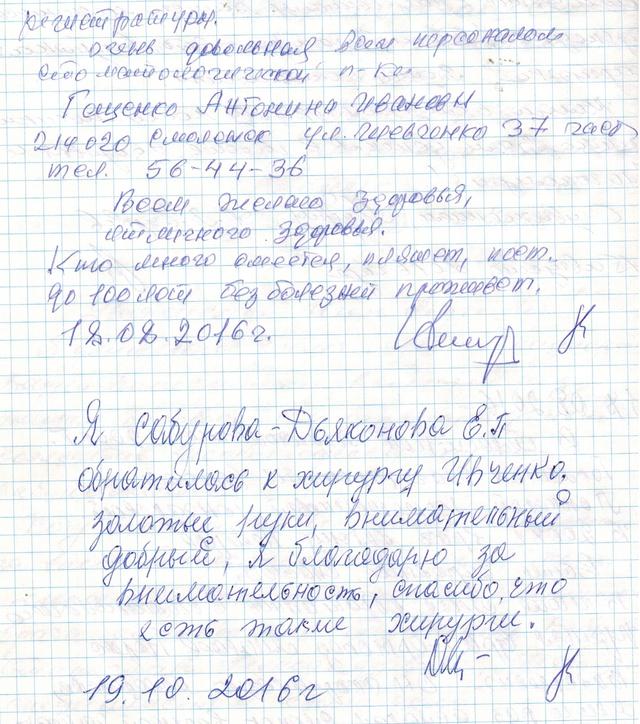 регистратуры.
очень довольная всем персоналом
стоматологической п-ки
Гащенко Антонина Ивановн
214020 Смоленск ул. Шевченко 37
тел. 56-44-36
Всем желаю здоровья,
отличного здоровья.
Кто много смеется, пляшет, поет.
до 100 лет без болезней проживет.
18.08.2016г.
Я Сабурова-Дьяконова Е.П
обратилась к хирургу Ивченко.
золотые руки, внимательный
добрый, я благодарю за
внимательность, спасибо, что
есть такие хирурги.
19.10.2016г